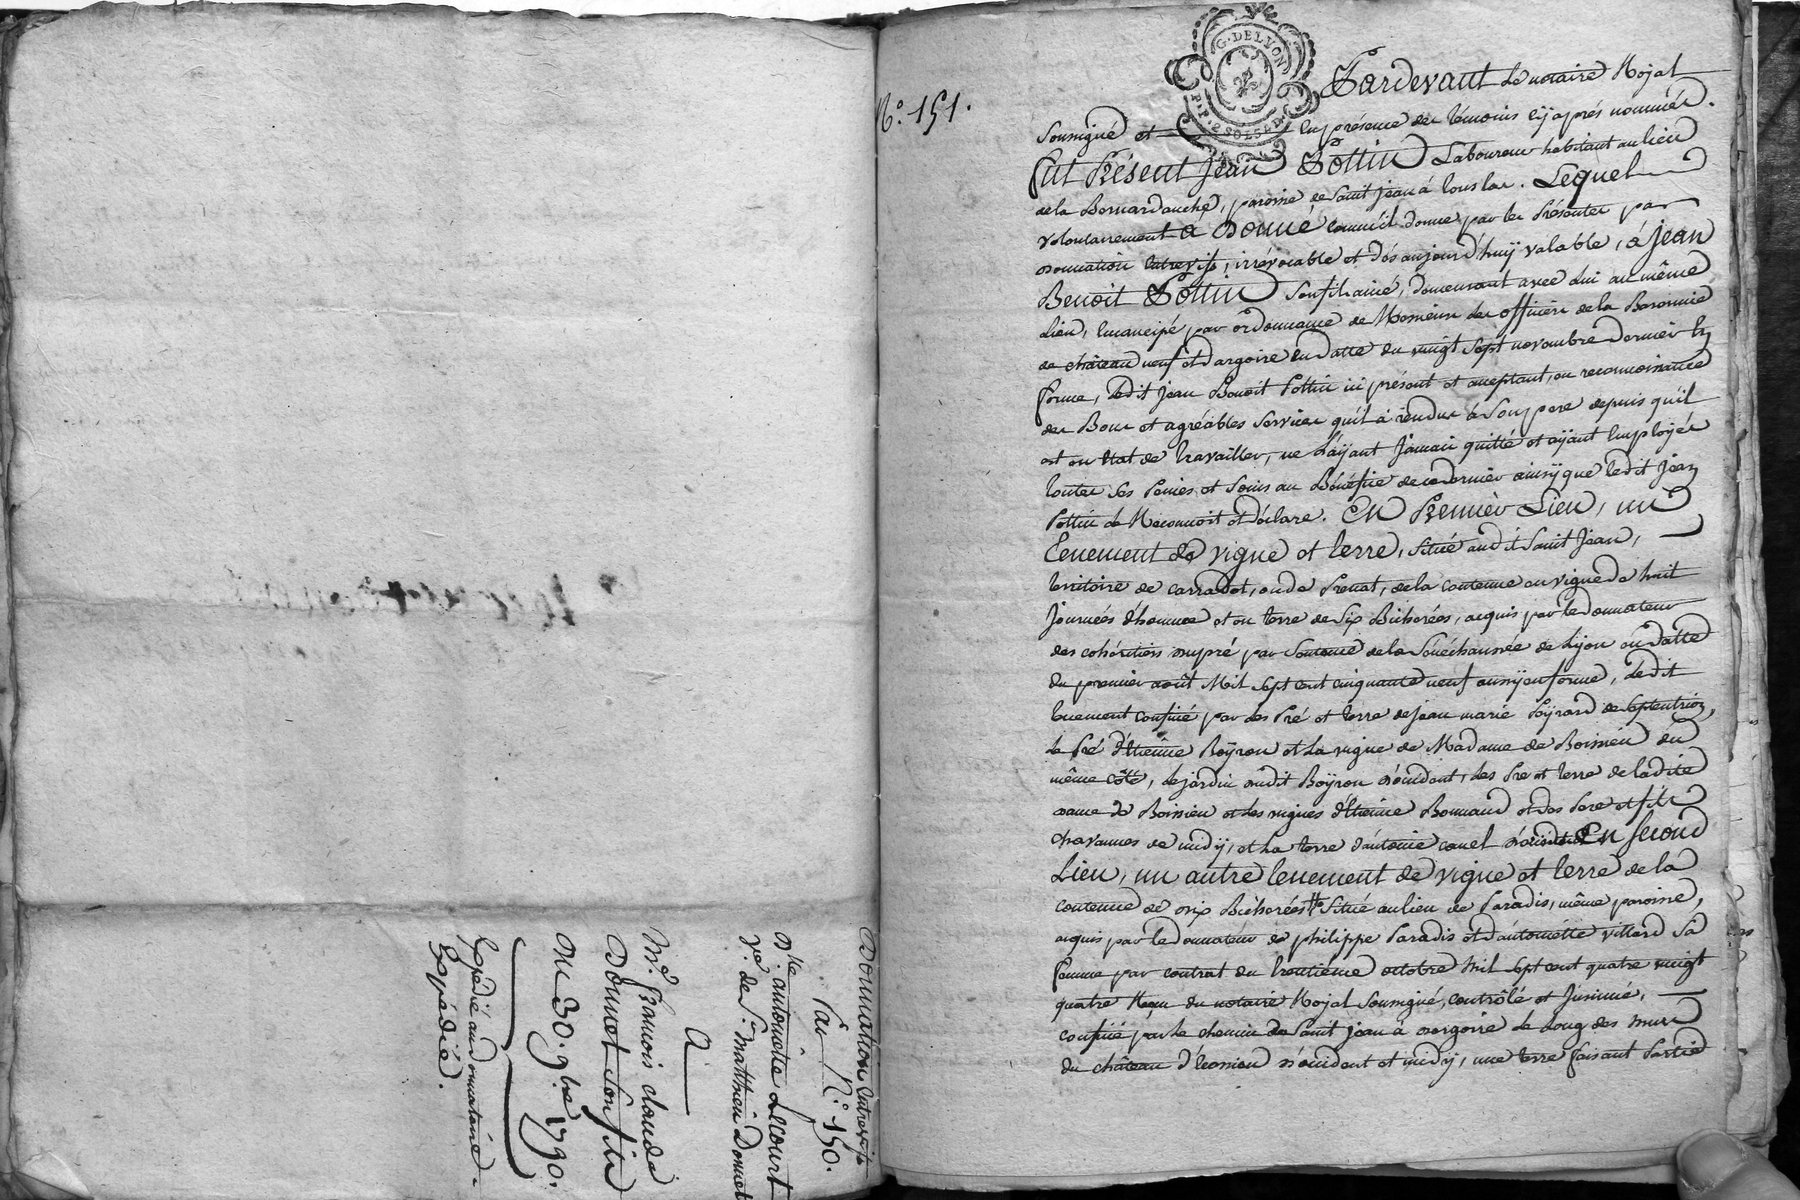 Donnation Entrevifs
Par N°. 150.
D.lle antoinette Lecourt
v.e de S.r matthieu Donnet
a
M.e francois claude
Donnet Son fils
Du 30. 9bre 1790.
Expédié au donnataire.
Expédiée.
N°. 151.
G. DE LYON
Pardevant Le notaire Royal
Soussigné et En présence des témoins cÿ après nommés.
fut Présent Jean Pottin Laboureur habitant au lieu
de la Bernardauche, paroisse de Saint Jean à touslas. Lequel
volontairement a Donné comm'il donne par les Présentes par
donnation Entrevifs, irrévocable et dès aujourd'huÿ valable, à Jean
Benoit Pottin Son fils ainé, demeurant avec Lui au même
Lieu, Emancipé par ordonnance de Messieurs les officiers de la Baronnie
de château neuf et dargoire en datte du vingt Sept novembre dernier En
forme, Ledit Jean Benoit Pottin ici présent et acceptant, en reconnoissance
des Bons et agréables Services qu'il a rendus à Son pere depuis qu'il
est en Etat de travailler, ne L'aÿant Jamais quitté et aÿant Employé
toutes Ses Peines et Soins au Bénéfice de ce dernier ainsÿ que ledit Jean
Pottin Le Reconnoit et déclare. En Premièr Lieu, un
tenement de vigne et terre, Situé audit Saint Jean,
territoire de carradot, ou de Prenat, de la contenue en vigne de huit
Journées d'homme et en terre de Six Bicherées, acquis par le donnateur
des cohéritiers mupré par Sentence de la Sénéchaussée de Lÿon en datte
du premier août Mil Sept cent cinquante neuf aussÿ en forme, Ledit
tenement confiné par les Pré et terre de jean marie Poÿrard de Septentrion,
Le Pré d'Etienne Boÿron et La vigne de Madame de Boissieu du
même côté, Le jardin dudit Boÿron d'occident, les Pre et terre de Ladite
dame de Boissieu et les vignes d'Etienne Bonnand et des Pere et fils
chavannes de midÿ, et La terre d'antoine canel d'orient. En Second
Lieu, un autre tenement de vigne et terre de la
contenue de dix Bicherées Situé au lieu de Paradis, même paroisse,
acquis par le donnateur de philippe Paradis et d'antoinette villard Sa
femme par contrat du trentième octobre Mil Sept cent quatre vingt
quatre Reçu du notaire Royal Soussigné, contrôlé et Insinué,
confiné par le chemin de Saint jean à dargoire Le Long des murs
du château d'Econsieu d'occident et midÿ, une terre faisant Partie